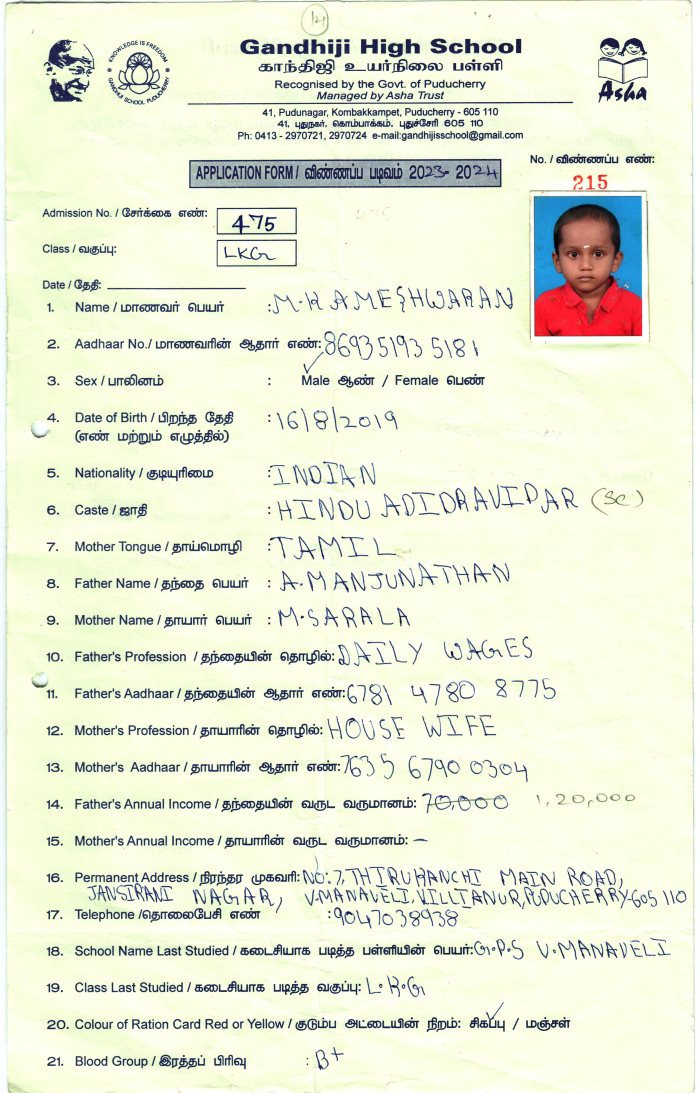 14
Gandhiji High School
காந்திஜி உயர்நிலை பள்ளி
Recognised by the Govt. of Puducherry
Managed by Asha Trust
KNOWLEDGE IS FREEDOM
GANDHIJI SCHOOL PUDUCHERRY
Asha
41, Pudunagar, Kombakkampet, Puducherry - 605 110
41, புதுநகர், கொம்பாக்கம், புதுச்சேரி 605 110
Ph: 0413 - 2970721, 2970724 e-mail:gandhijisschool@gmail.com
APPLICATION FORM / விண்ணப்ப படிவம் 2023- 2024
No. / விண்ணப்ப எண்:
215
Admission No. / சேர்க்கை எண்: 475
Class / வகுப்பு: LKG
Date / தேதி:
1. Name / மாணவர் பெயர் :M.KAMESHWARAN
2. Aadhaar No./ மாணவரின் ஆதார் எண்: 8693 5193 5181
3. Sex / பாலினம் : ✓Male ஆண் / Female பெண்
4. Date of Birth / பிறந்த தேதி :16/8/2019
(எண் மற்றும் எழுத்தில்)
5. Nationality / குடியுரிமை :INDIAN
6. Caste / ஜாதி : HINDU ADIDRAVIDAR (SC)
7. Mother Tongue / தாய்மொழி :TAMIL
8. Father Name / தந்தை பெயர் : A.MANJUNATHAN
9. Mother Name / தாயார் பெயர் : M.SARALA
10. Father's Profession / தந்தையின் தொழில்: DAILY WAGES
11. Father's Aadhaar / தந்தையின் ஆதார் எண்: 6781 4780 8775
12. Mother's Profession / தாயாரின் தொழில்: HOUSE WIFE
13. Mother's Aadhaar / தாயாரின் ஆதார் எண்: 7635 6790 0304
14. Father's Annual Income / தந்தையின் வருட வருமானம்: 70,000 1,20,000
15. Mother's Annual Income / தாயாரின் வருட வருமானம்: –
16. Permanent Address / நிரந்தர முகவரி: NO:7, THIRUKANCHI MAIN ROAD,
JANSIRANI NAGAR, V.MANAVELI, VILLIANUR, PUDUCHERRY-605 110
17. Telephone /தொலைபேசி எண் :9047038938
18. School Name Last Studied / கடைசியாக படித்த பள்ளியின் பெயர்: G.P.S V.MANAVELI
19. Class Last Studied / கடைசியாக படித்த வகுப்பு: L.K.G
20. Colour of Ration Card Red or Yellow / குடும்ப அட்டையின் நிறம்: சிகப்பு ✓ / மஞ்சள்
21. Blood Group / இரத்தப் பிரிவு : B+